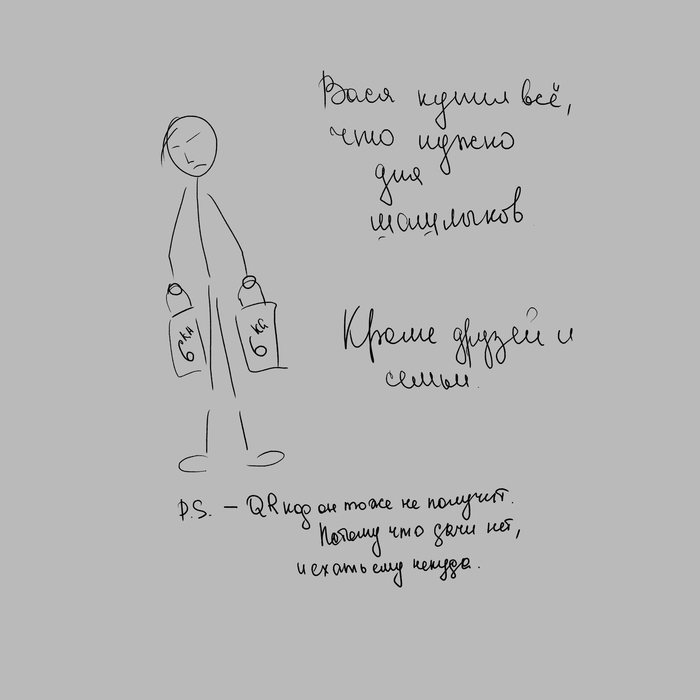 Вася купил всё,
что нужно
для
шашлыков
Кроме друзей и
семьи.
6 кг
6 кг
P.S. – QR код он тоже не получит.
Потому что дачи нет,
и ехать ему некуда.